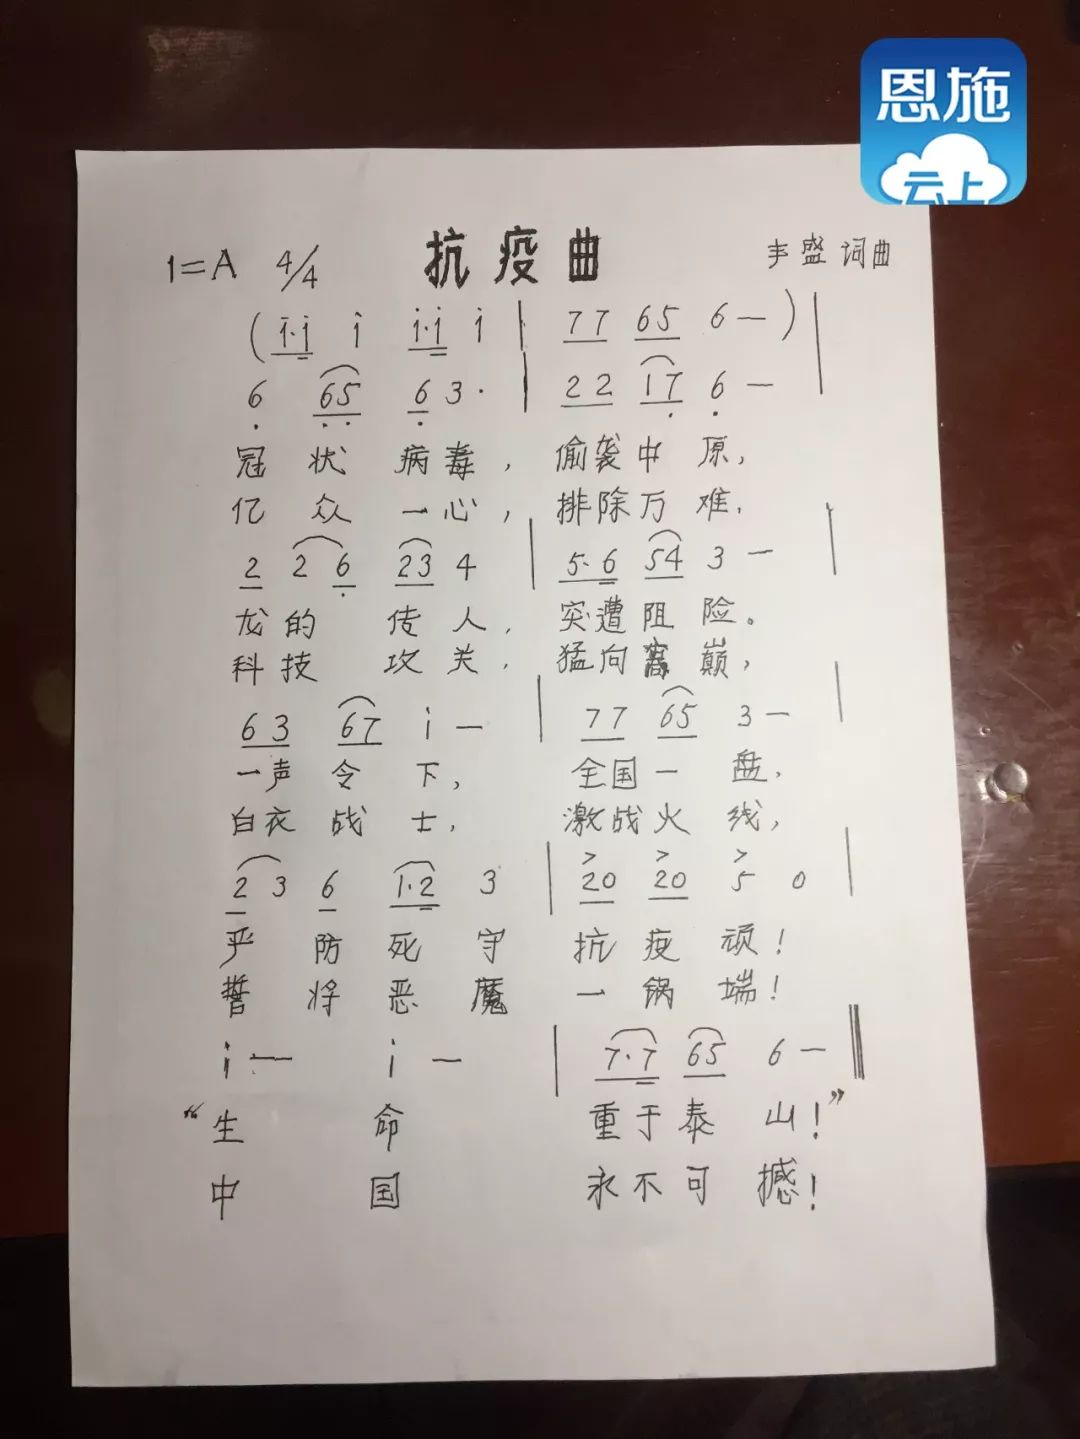 恩施
云上
1=A 4/4 抗疫曲 丰盛 词曲
(i·i i i·i i | 77 65 6—) |
6 65 63· | 22 17 6—
冠状病毒，偷袭中原，
亿众一心，排除万难，
2 26 23 4 | 5·6 54 3— |
龙的传人，突遭阻险。
科技攻关，猛向高巅，
63 67 i— | 77 65 3— |
一声令下，全国一盘，
白衣战士，激战火线，
23 6 1·2 3 | 20 20 5 0 |
严防死守抗疫顽！
誓将恶魔一锅端！
i— i— | 7·7 65 6— ‖
“生命重于泰山！”
中国永不可撼！